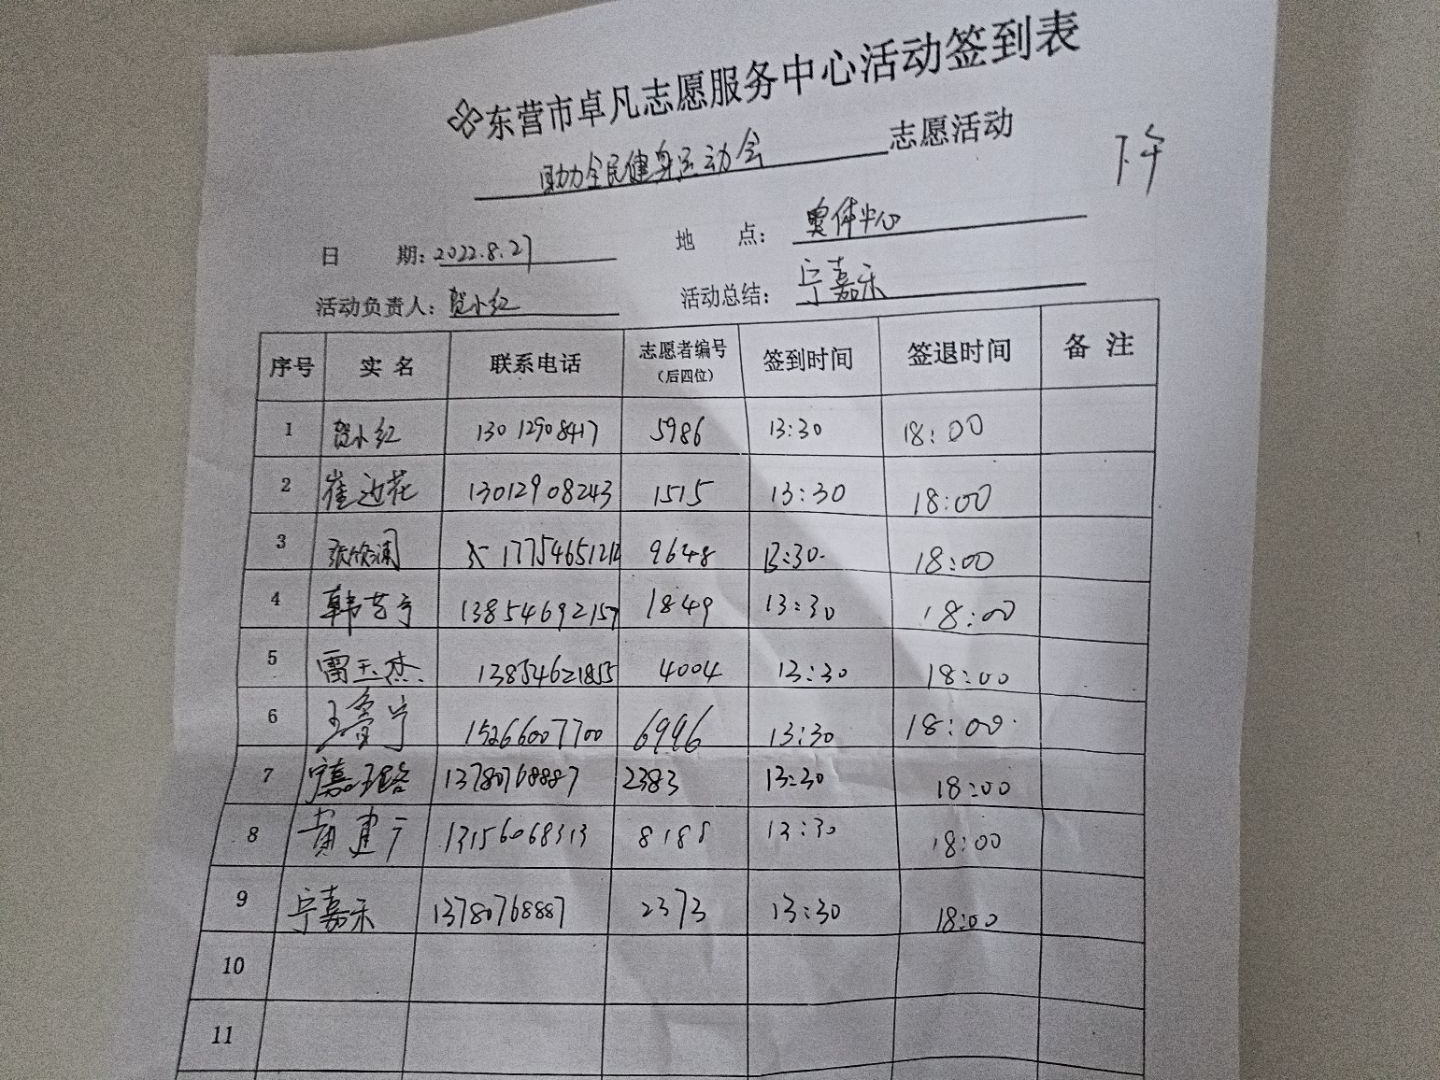 东营市卓凡志愿服务中心活动签到表
助力全民健身运动会 志愿活动
下午
日 期：2022.8.27 地 点：奥体中心
活动负责人：贺小红 活动总结：宁嘉禾
序号 实名 联系电话 志愿者编号（后四位） 签到时间 签退时间 备注
1 贺小红 13012908417 5986 13:30 18:00
2 崔迎花 13012908243 1515 13:30 18:00
3 张欣润 17754651212 9648 13:30 18:00
4 韩艺宁 13854692157 1849 13:30 18:00
5 雷玉杰 13854621855 4004 13:30 18:00
6 王 宁 15266007700 6996 13:30 18:00
7 宁嘉璐 13780768887 2383 13:30 18:00
8 黄建广 13156068313 8188 13:30 18:00
9 宁嘉禾 13780768887 2373 13:30 18:00
10
11